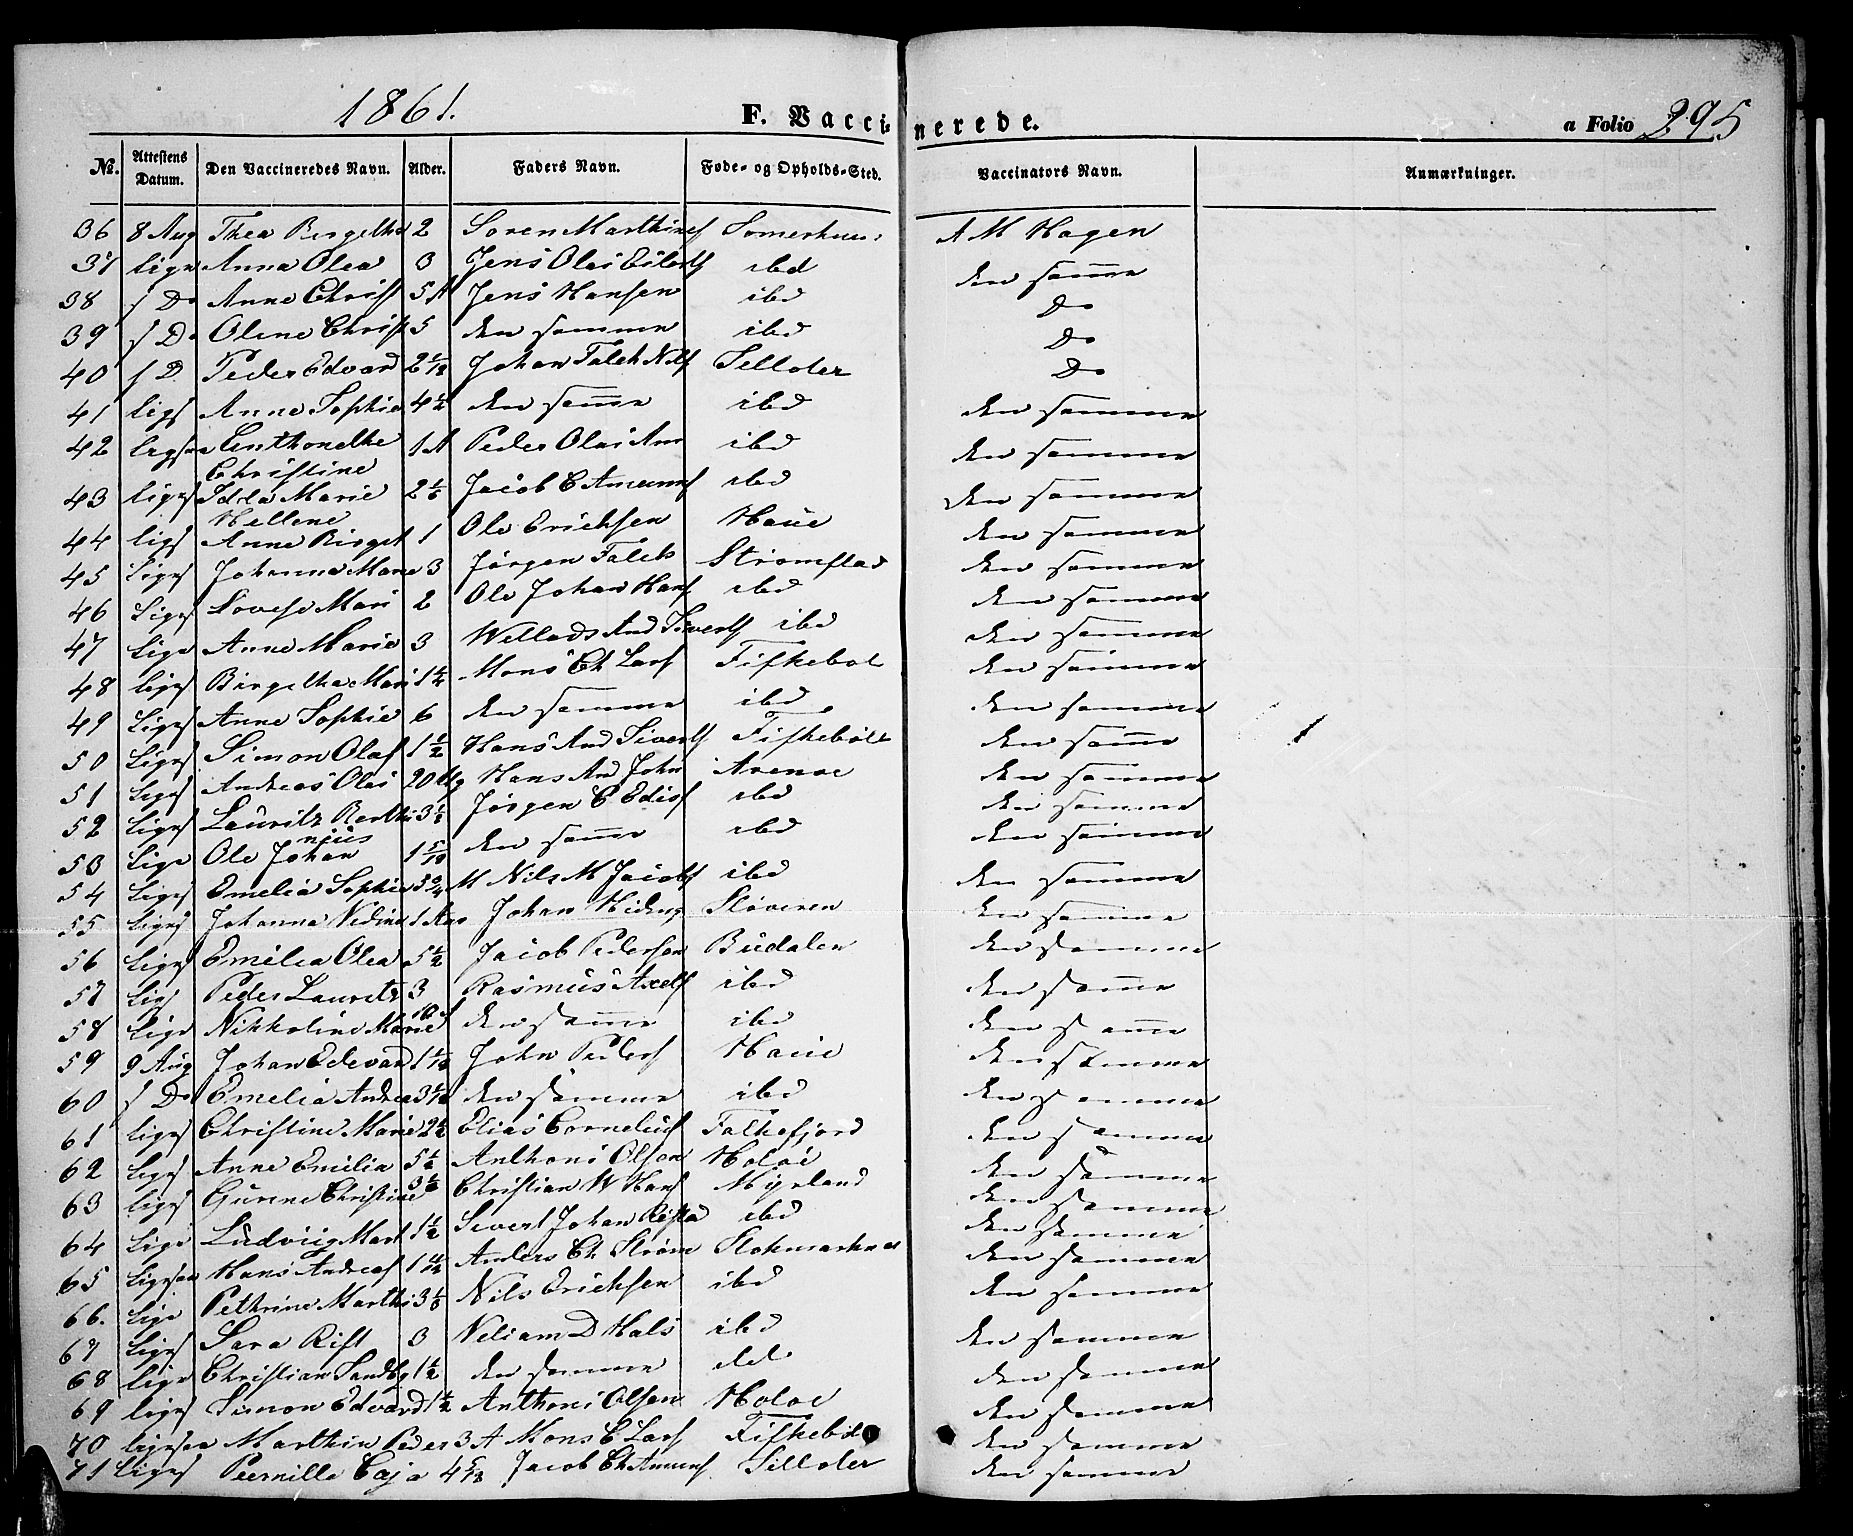 1861.
F. Vaccinerede.
a Folio 295
No. Attestens Datum. Den Vaccineredes Navn. Alder. Faders Navn. Føde- og Opholds-Sted. Vaccinators Navn. Anmærkninger.
36 8 Aug Thea Bergitha 2 Soren Marthines A M Hagen
37 lige Anna Olea 3 Jens Olai ibd den samme
38 s Do Anne Christ 5 A Jens Hansen ibd Do
39 s Do Oline Christ 5 den samme ibd Do
40 s D Peder Edvard 2 1/12 Johan Falch Nils Selloter Do
41 ligs Anne Sophie 4 1/2 den samme ibd den samme
42 ligsaa Anthonethe 1 A Peder Olai Am ibd den samme
Christine
43 liges Idda Marie 2 1/6 Jacob C Amuns ibd den samme
Hellene
44 ligs Anne Birget 1 Ole Erichsen Haue den samme
45 Liges Johanna Marie 3 Jørgen Falch Strømstad den samme
46 Liges Lovise Mari 2 Ole Johan Hans ibd den samme
47 Lige Anne Marie 3 Wellads And Siverts ibd den samme
48 liges Birgetha Mari 1 1/4 Mons Ch Lars Fiskebøl den samme
49 Liges Anne Sophie 6 den samme ibd den samme
50 Liges Simon Olaf 1 1/2 Hans And Siverts Fiskebøll den samme
51 Liges Andreas Olai 20 Ug Hans And John Arenøe den samme
52 liges Lauritz Berthi 3 1/2 Jørgen C Edis ibd den samme
nius
53 Lige Ole Johan 1 5/12 den samme ibd den samme
54 Liges Emelia Sophia M Nils M Jacobs ibd den samme
55 liges Johanna Nedina 1 Aar Johan Hiding Sløveren den samme
56 Liges Emilia Olea 5 1/2 Jacob Pedersen Budalen den samme
57 Liges Peder Lauritz 3 Rasmus Axels ibd den samme
58 Lige Nikkoline Marie den samme ibd den samme
59 9 Aug Johan Edevard 1 1/12 John Peders Haue den samme
60 s Do Emelia Andrea 3 1/12 den samme ibd den samme
61 liges Christine Marie 2 1/2 Elias Cornelius Falkefjord den samme
62 liges Anne Emilia 5 1/2 Anthoni Olsen Holøe den samme
63 liges Gurine Christine Christian W Hans Myrland den samme
64 Lige Ludvig Mart 1 1/2 Sivert Johan ibd den samme
65 Ligesaa Hans Andreas Anders Ch Strøm Stokmarknes den samme
66. lige Pethrine Marthi Nils Erichsen ibd den samme
67 liges Sara Rist 3 Neliam D Hals ibd den samme
68 lige Christian Sandbg 1 1/2 den samme den samme
69 liges Simon Edvard 1 1/2 Anthoni Olsen Holøe den samme
70 ligesaa Marthin Peder 3 A Mons C Lars Fiskebøl den samme
71 Liges Pernille Caja 4 5/12 Jacob Ch Amuns Selloter den samme